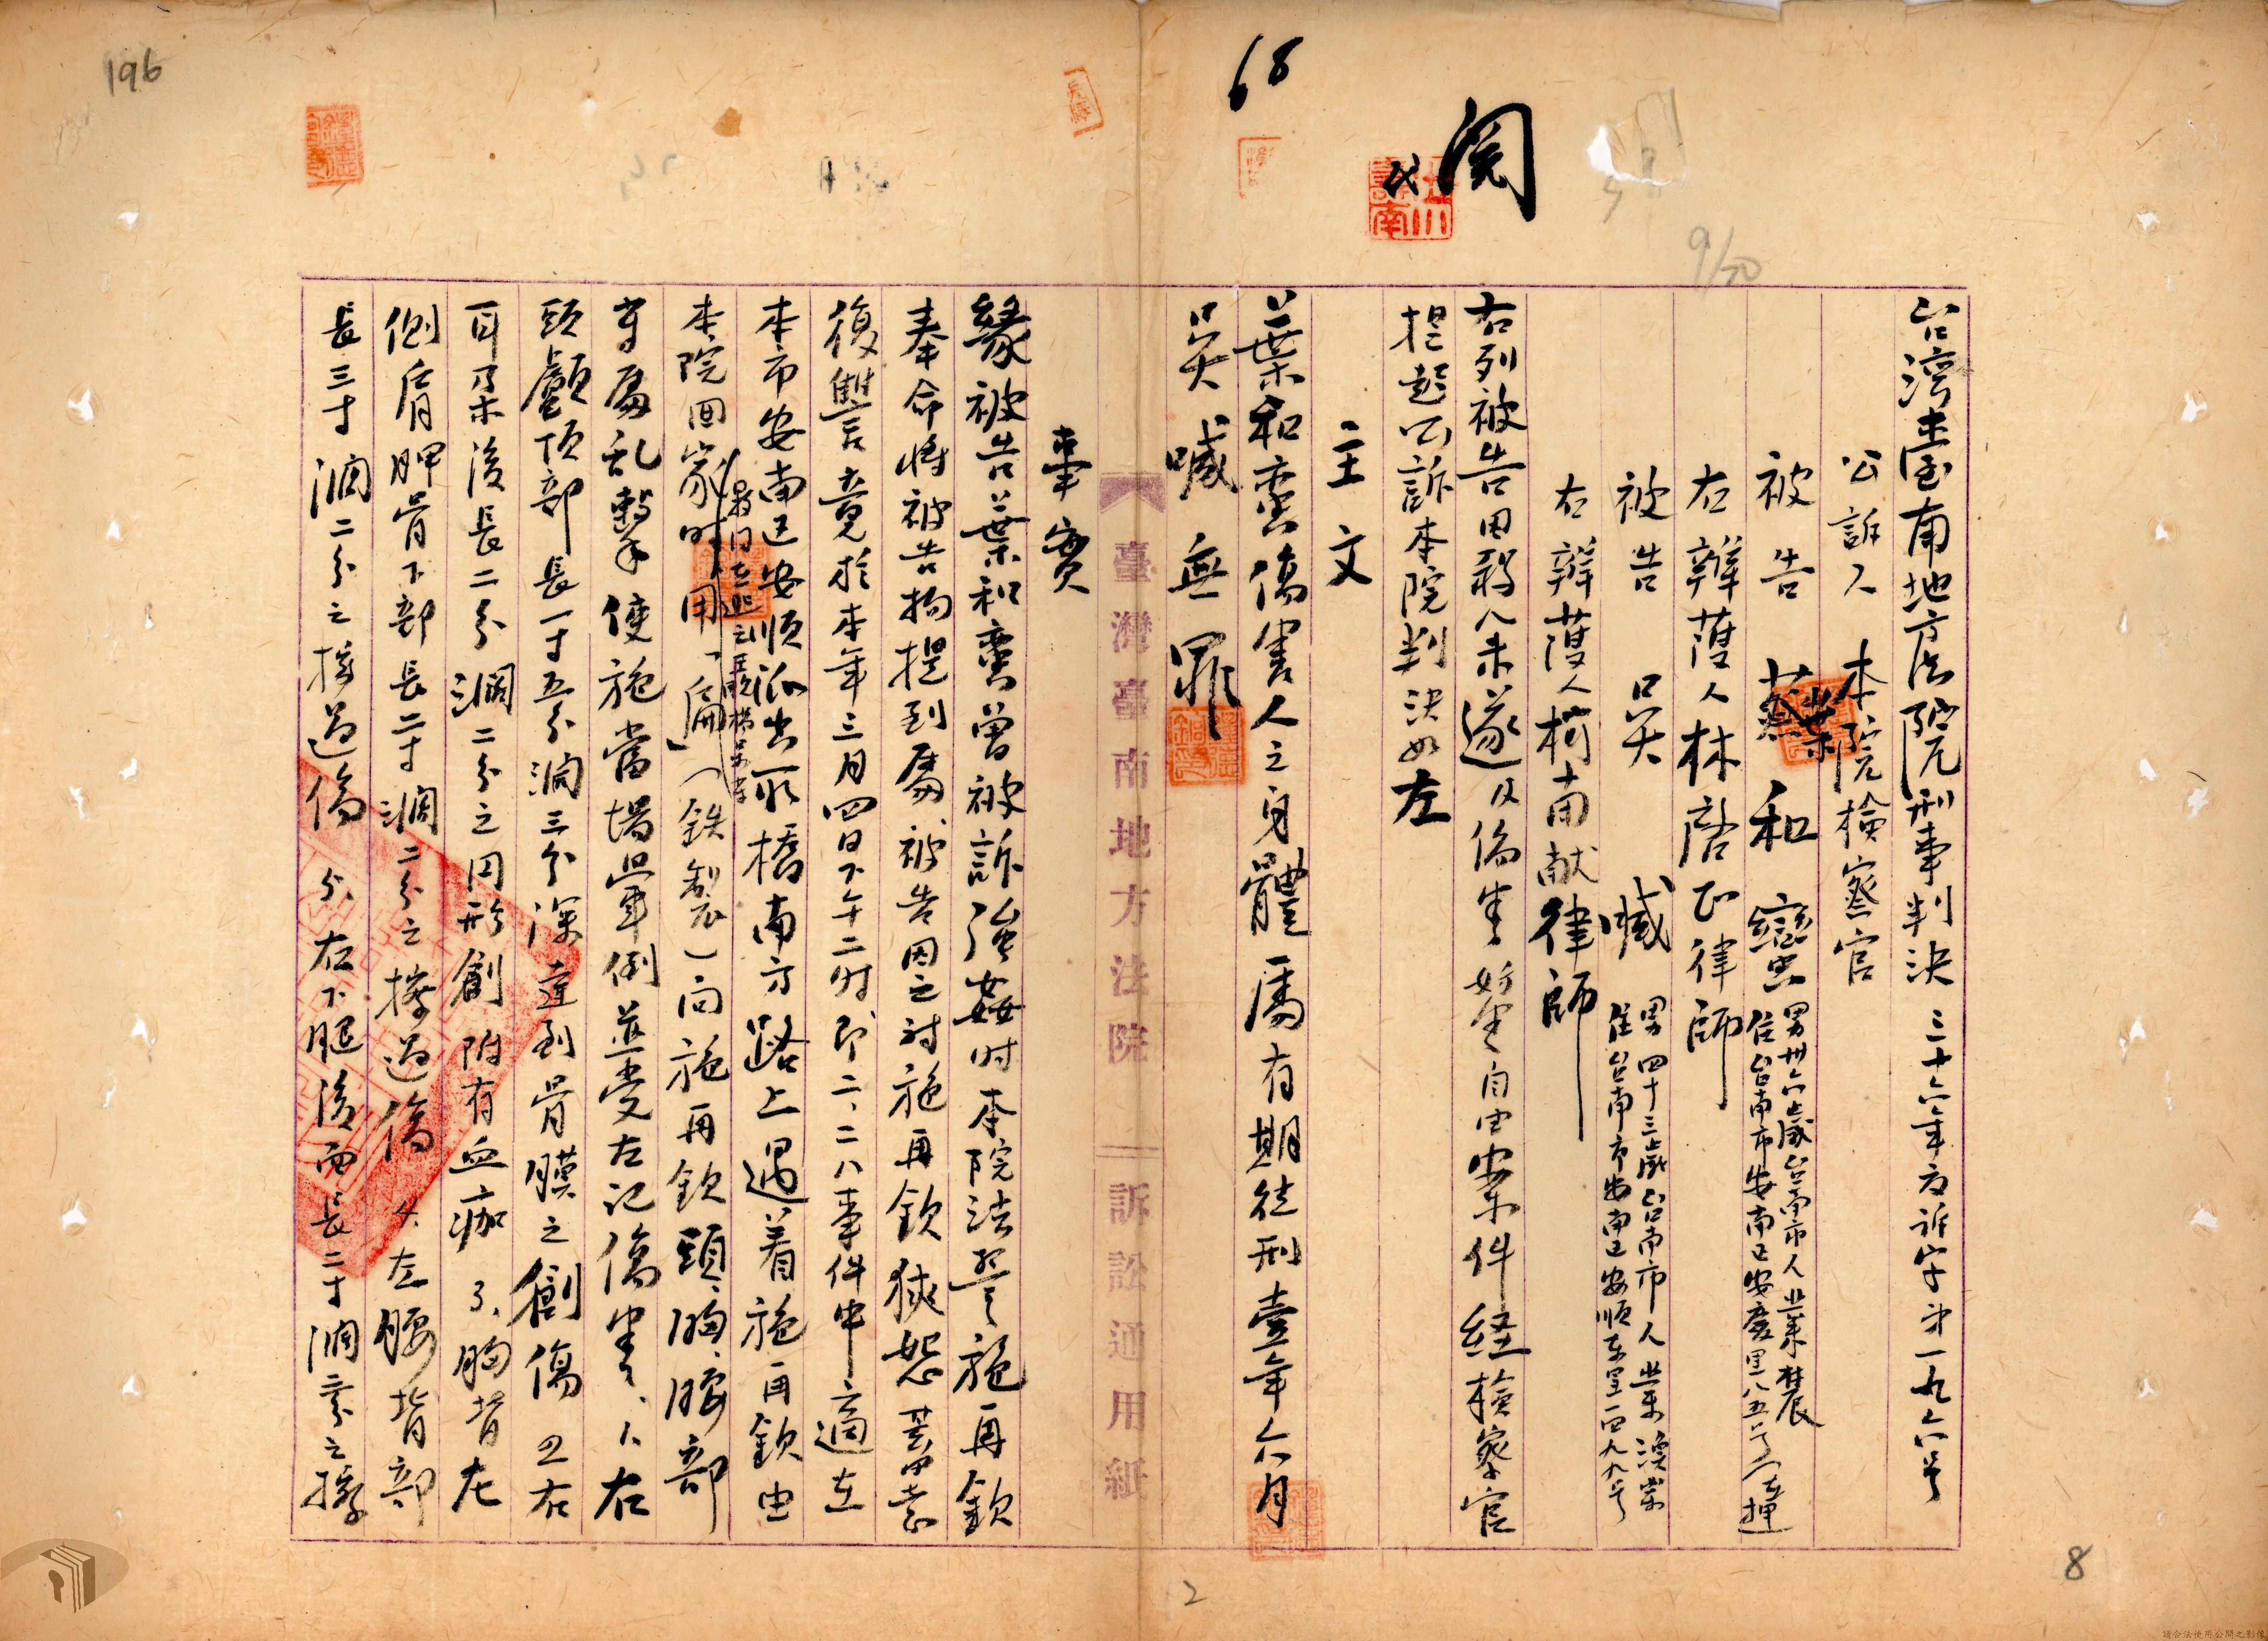 196
68
閱
代
9/30
台灣臺南地方法院刑事判決 三十六年度訴字第一九六号
公訴人 本院檢察官
被告 葉和蠻 男卅六歲台南市人業農
住台南市安南区安慶里八五号
右辯護人林啓正律師
被告 吳喊 男四十三歲台南市人業漁業
住台南市安南区安順东里一四九九号
右辯護人柯南献律師
右列被告因殺人未遂及伤害妨害自由案件経檢察官
提起公訴本院判決如左
主文
葉和蠻傷害人之身體處有期徒刑壹年六月
吳喊無罪
臺灣臺南地方法院 訴訟通用紙
事實
緣被告葉和蠻曾被訴強姦时本院法警施再欽
奉命將被告拘提到處被告因之对施再欽狹怨蓄意
復讐竟於本年三月四日下午二时即二、二八事件中適在
本市安南区安順派出所橋南方路上遇着施再欽由
本院回家时用「扁」(鉄製)向施再欽頭、胸、腰部
等處乱擊使施當場暈倒並受左記傷害、1、右
頭顱頂部長一寸五分濶三分深達到骨膜之創傷 2右
耳朶後長二分濶二分之円形創附有血痂 3、胸背左
側肩胛骨下部長二寸濶二分之擦過傷 4、左腰背部
長三寸濶二分之擦過傷 5、右下腿後面長二寸濶二分之擦
2
8